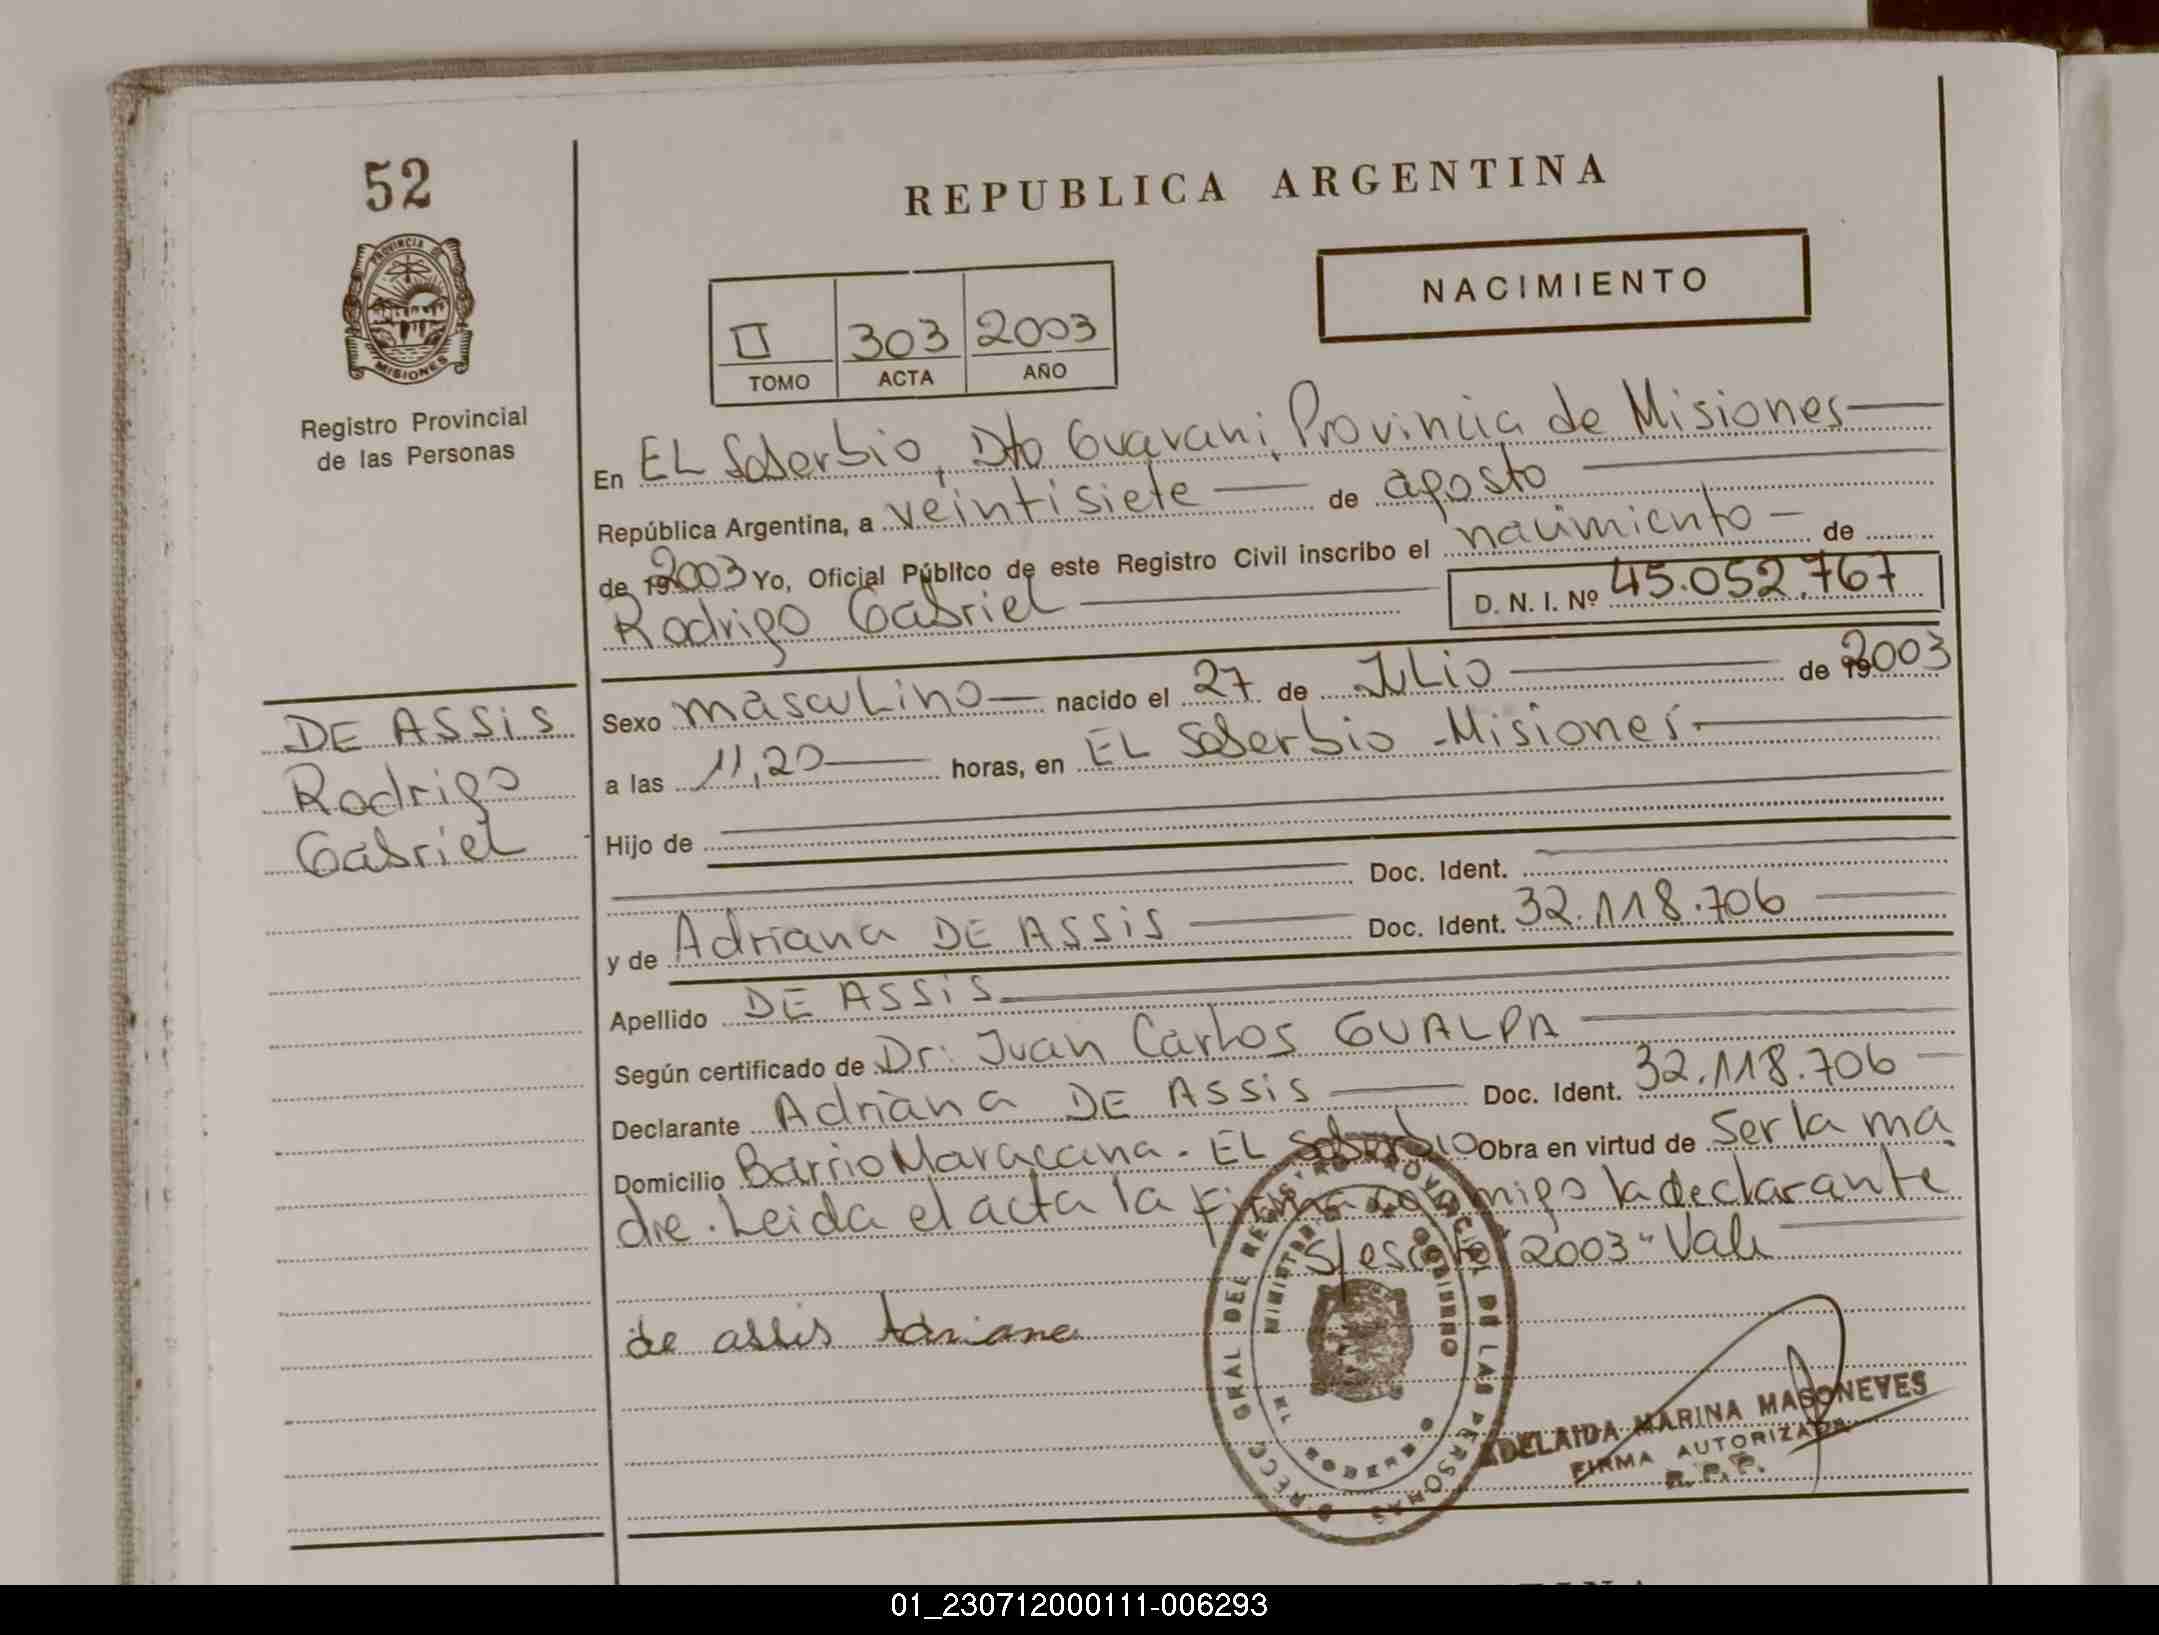 52
PROVINCIA DE
MISIONES
Registro Provincial
de las Personas
REPUBLICA ARGENTINA
NACIMIENTO
II 303 2003
TOMO ACTA AÑO
En EL Soberbio, Dto Guarani, Provincia de Misiones
República Argentina, a veintisiete de agosto
de 2003 Yo, Oficial Público de este Registro Civil inscribo el nacimiento de
Rodrigo Gabriel D. N. I. Nº 45.052.767
Sexo masculino nacido el 27 de Julio de 2003
a las 11,20 horas, en EL Soberbio - Misiones
Hijo de
Doc. Ident.
y de Adriana DE ASSIS Doc. Ident. 32.118.706
Apellido DE ASSIS
Según certificado de Dr. Juan Carlos GUALPA
Declarante Adriana DE ASSIS Doc. Ident. 32.118.706
Domicilio Barrio Maracana. EL Soberbio Obra en virtud de ser la ma
dre. Leida el acta la firma conmigo la declarante
S/escrito "2003" Vale
de assis Adriana
DE ASSIS
Rodrigo
Gabriel
GRAL DEL REGISTRO PROVINCIAL DE LAS PERSONAS
MINISTERIO DE GOBIERNO
EL SOBERBIO
ADELAIDA MARINA MASONEVES
FIRMA AUTORIZADA
R.P.P.
01_230712000111-006293